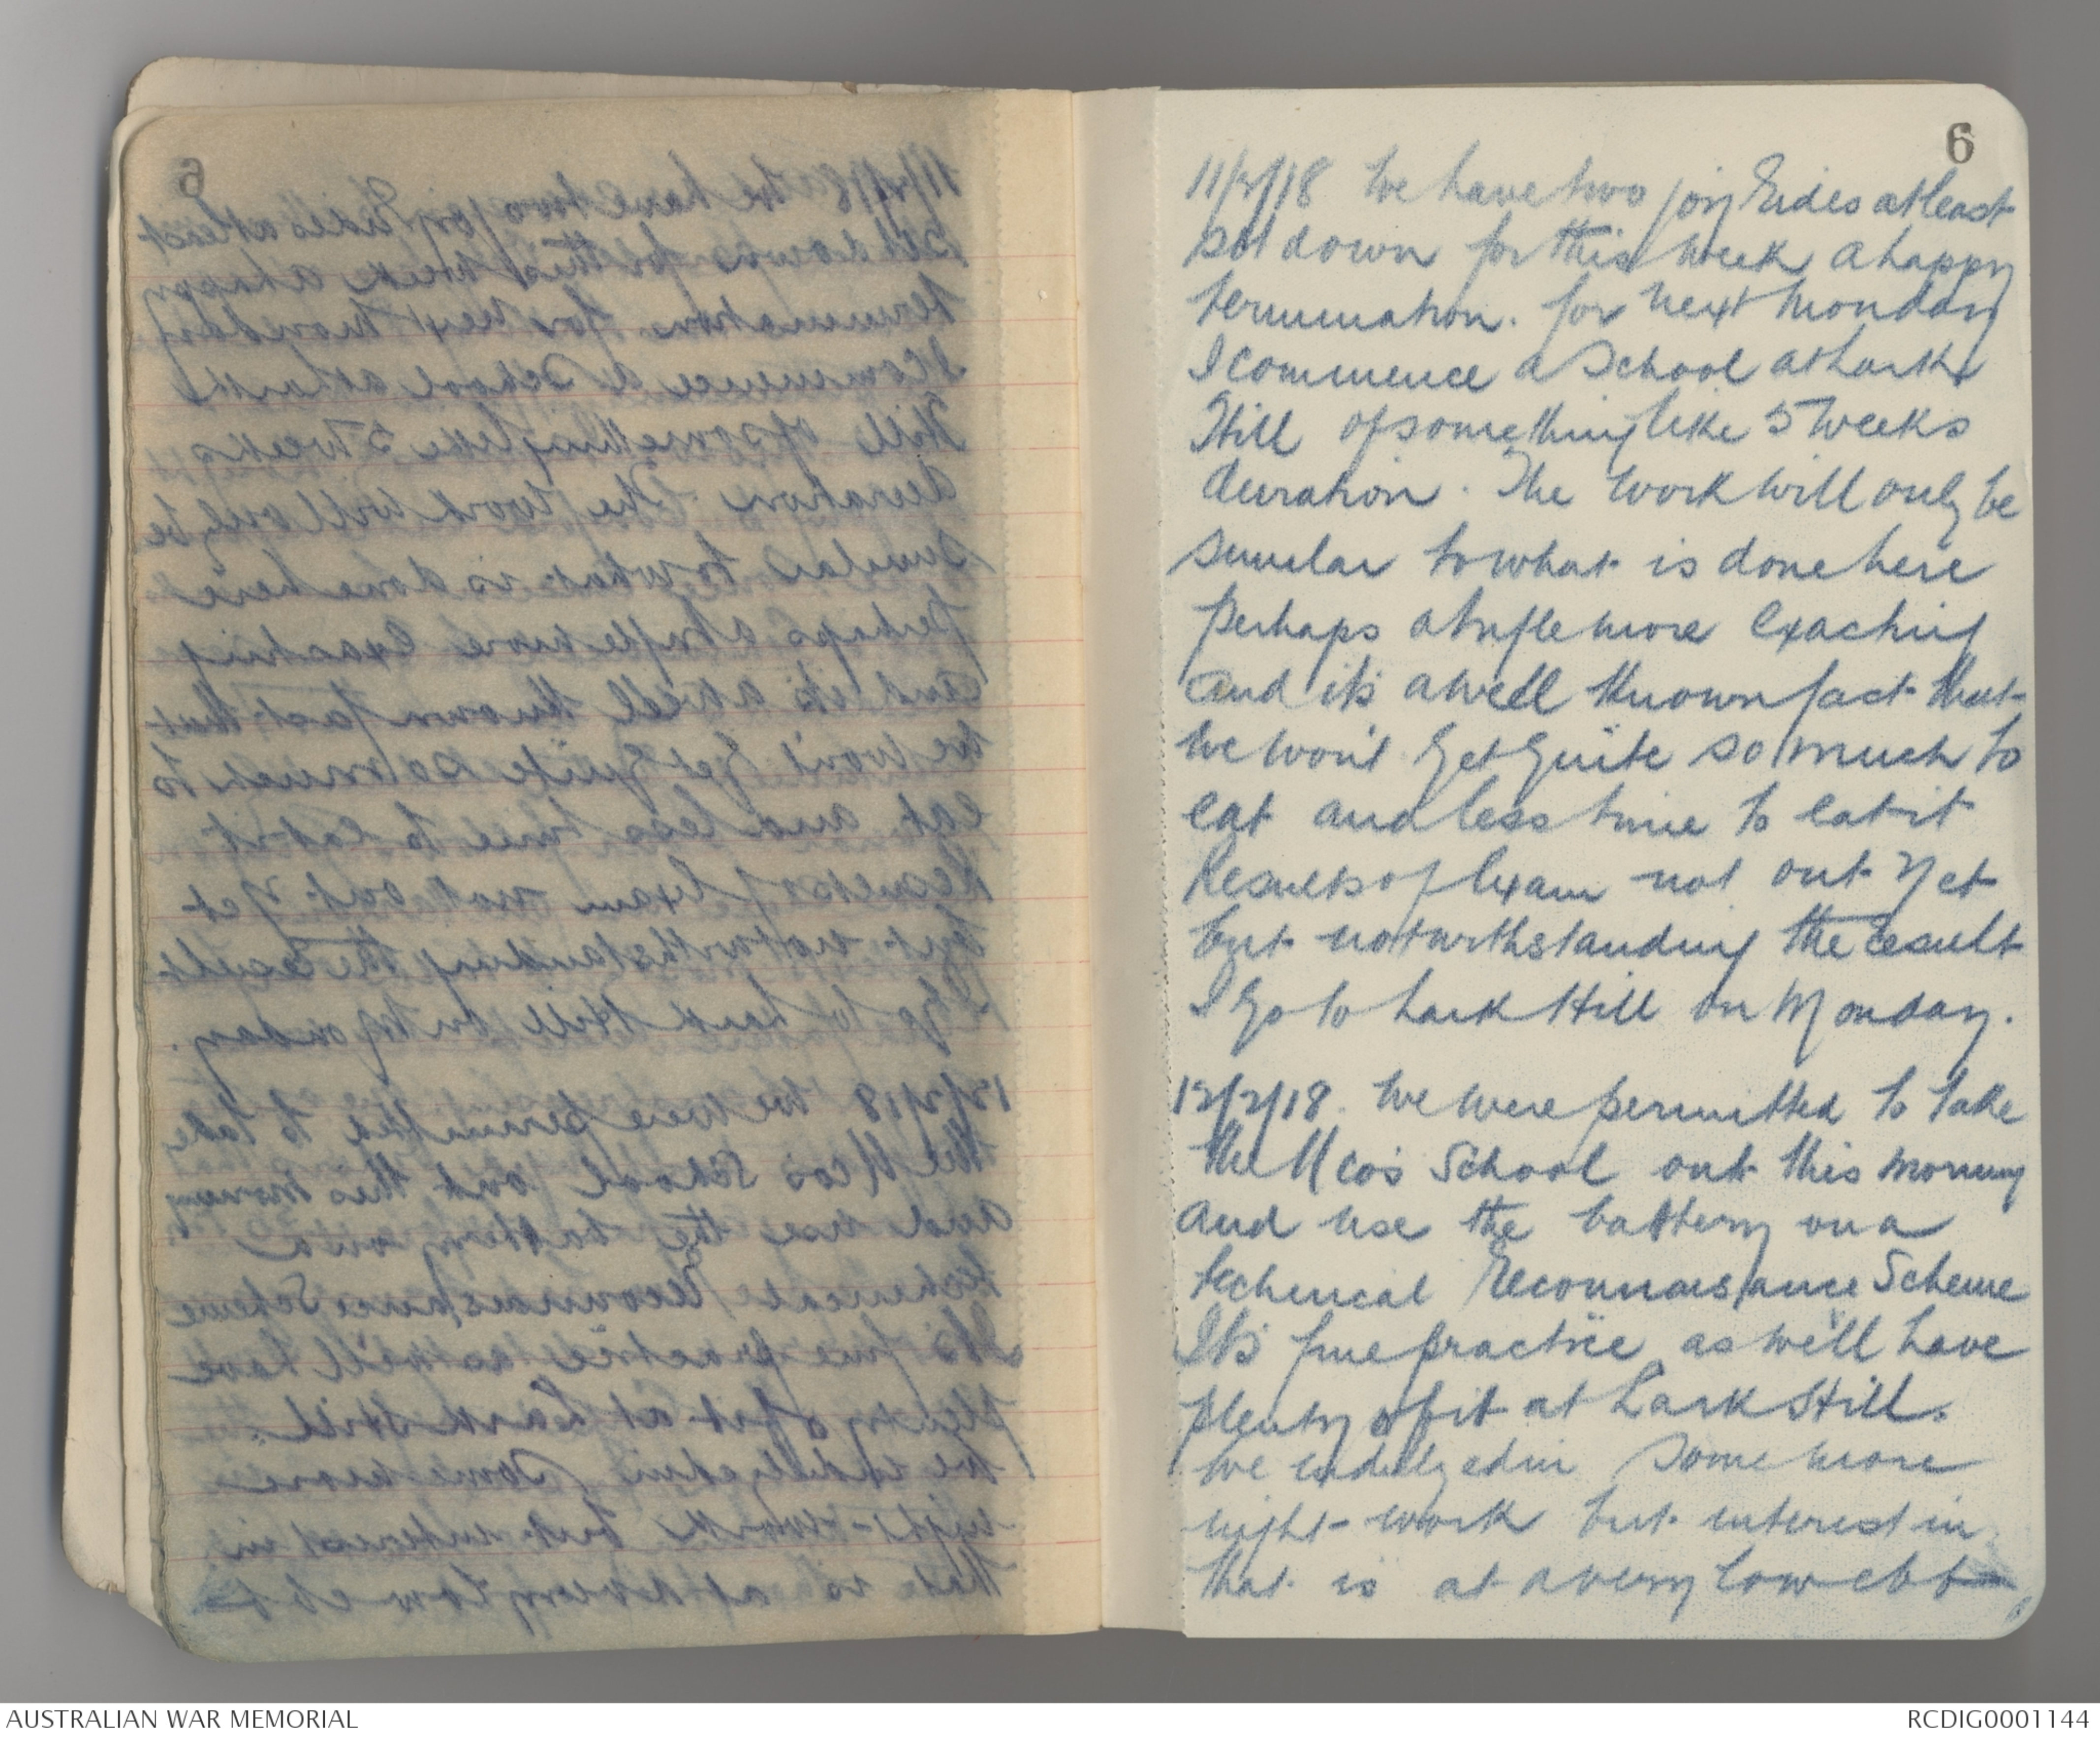 6
11/2/18 We have two joy rides at least
set down for this week a happy
termination. for next Monday
I commence a School at Lark
Hill of something like 5 weeks
duration. The work will only be
similar to what is done here
perhaps a trifle more exacting
and it's a well known fact that
we won't get quite so much to
eat and less time to eat it
Results of Exam not out yet
but notwithstanding the result
I go to Lark Hill on Monday.
12/2/18. We were permitted to take
the Nco's School out this morning
and use the battery on a
technical Reconnaissance Scheme
It's fine practice as we'll have
plenty of it at Lark Hill.
We indulged in some more
night-work but interest in
that is at a very low ebb
AUSTRALIAN WAR MEMORIAL
RCDIG0001144